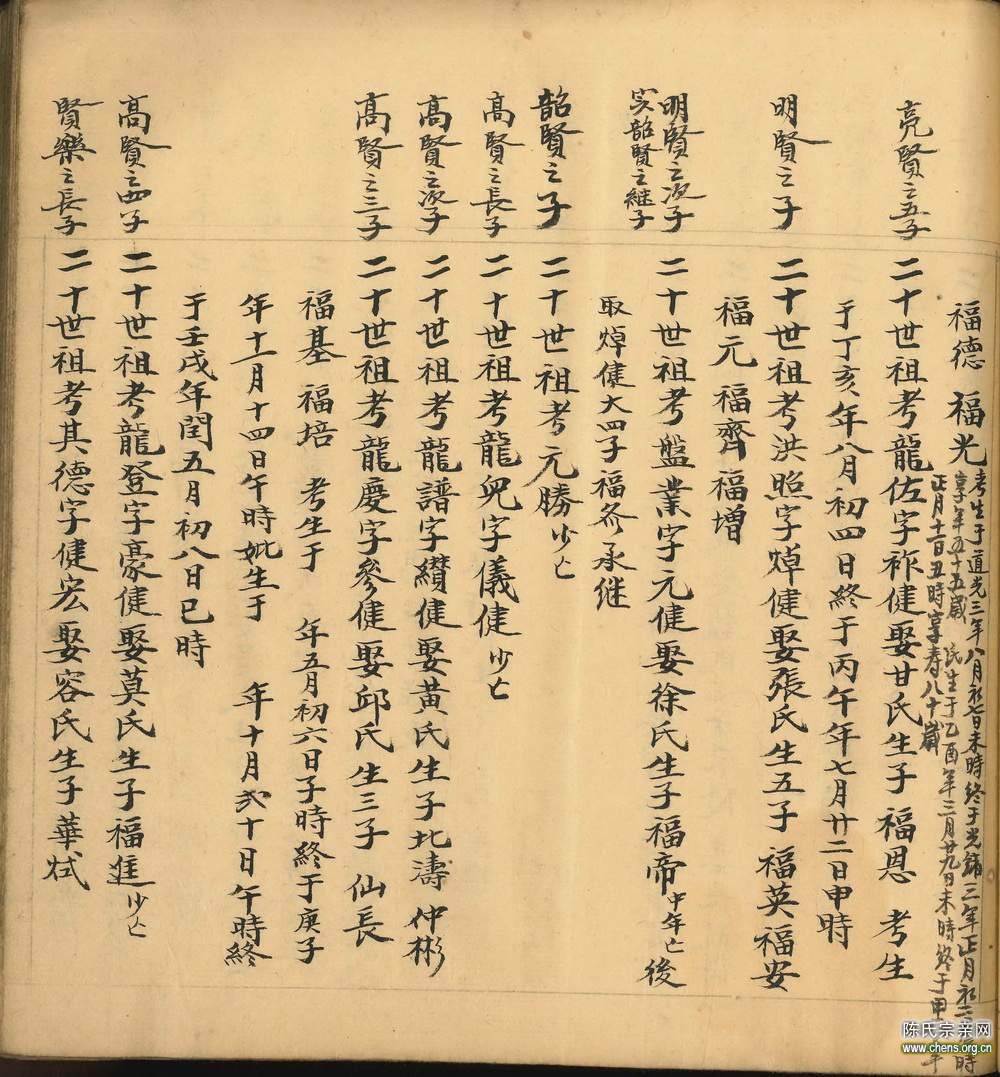 福德 福光
考生于道光三年八月初七日未時終于光緒三年正月初二日時
享年五十五歲 氏生于乙酉年三月廿九日未時終于甲年
正月十二日丑時享壽八十歲
亮賢之五子
二十世祖考龍佐字祚健娶甘氏生子 福恩 考生
于丁亥年八月初四日終于丙午年七月廿二日申時
明賢之子
二十世祖考洪照字焯健娶張氏生五子 福英福安
福元 福齊福增
明賢次子
實韶賢之継子
二十世祖考盤業字元健娶徐氏生子福帝中年亡後
取焯健大四子福承継
韶賢之子
二十世祖考元勝少亡
高賢之長子
二十世祖考龍兒字儀健少亡
高賢之次子
二十世祖考龍譜字纘健娶黃氏生子北濤 仲彬
高賢之三子
二十世祖考龍慶字參健娶邱氏生三子 仙長
福基 福培 考生于 年五月初六日子時終于庚子
年十一月十四日午時妣生于 年十月弍十日午時終
于壬戌年閏五月初八日巳時
高賢之四子
二十世祖考龍登字豪健娶莫氏生子福進少亡
賢樂之長子
二十世祖考其德字健宏娶容氏生子華栻
陈氏宗亲网
www.chens.org.cn